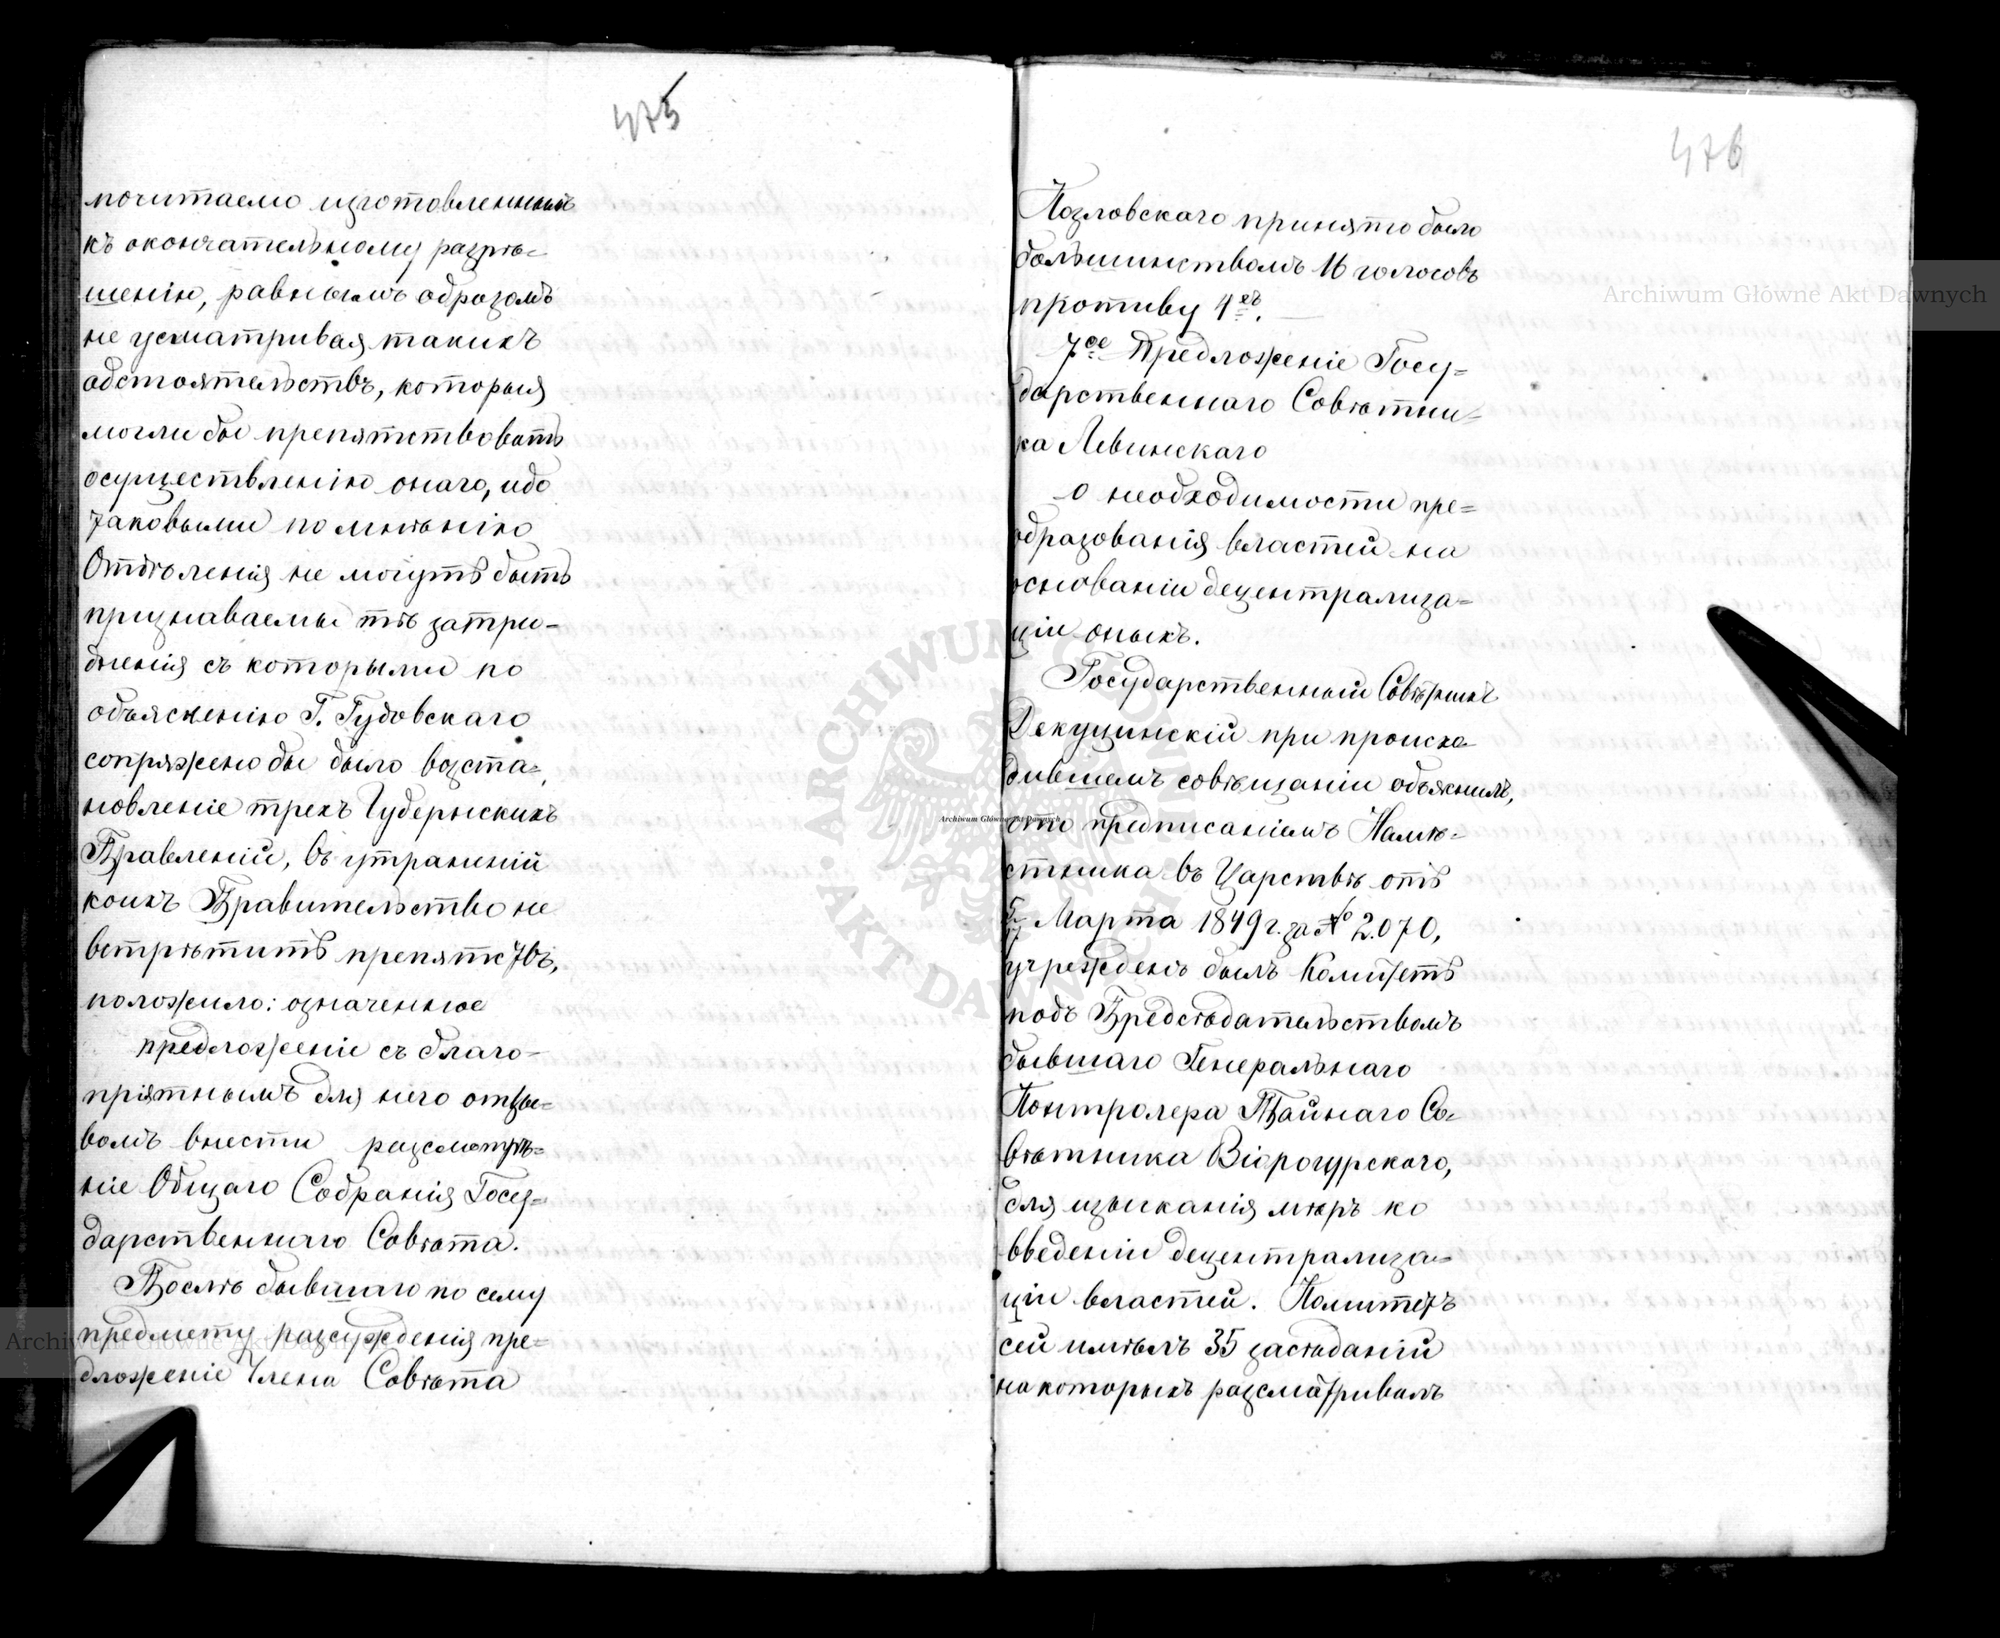 475
почитаемо изготовленнымъ
къ окончательному разрѣ-
шенію, равнымъ образомъ
не усматривая такихъ
обстоятельствъ, которыя
могли бы препятствовать
осуществленію онаго, ибо
таковыми по мнѣнію
Отдѣленія не могутъ быть
признаваемы тѣ затру-
дненія съ которыми по
объясненію Г. Гудовскаго
сопряжено бы было возста-
новленіе трехъ Губернскихъ
Правленій, въ устраненій
коихъ Правительство не
встрѣтитъ препятствъ,
положило: означенное
предложеніе съ благо-
пріятнымъ для него отзы-
вомъ внести разсмотрѣ-
ніе Общаго Собранія Госу-
дарственнаго Совѣта.
Послѣ бывшаго по сему
предмету разсужденія пре-
дложеніе Члена Совѣта
476
Козловскаго принято было
большинствомъ 16 голосовъ
противу 4ехъ.
7ое Предложеніе Госу-
дарственнаго Совѣтни-
ка Левинскаго
о необходимости пре-
образованія властей на
основаніи децентрализа-
ціи оныхъ.
Государственный Совѣтникъ
Декуцинскій при происхо-
дившемъ совѣщаніи объяснилъ,
что предписаніемъ Намѣ-
стника въ Царствѣ отъ
5/17 Марта 1849 г. за № 2.070,
учрежденъ былъ Комитетъ
подъ Предсѣдательствомъ
бывшаго Генеральнаго
Контролера Тайнаго Со-
вѣтника Віорогурскаго,
для изысканія мѣръ ко
введеніи децентрализа-
ціи властей. Комитетъ
сей имѣлъ 35 засѣданій
на которыхъ разсматривалъ
Archiwum Główne Akt Dawnych
Archiwum Główne Akt Dawnych
Archiwum Główne Akt Dawnych
ARCHIWUM GŁÓWNE AKT DAWNYCH